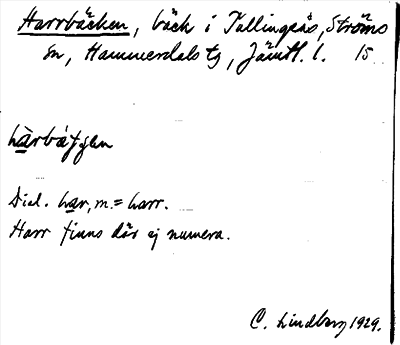 Harrbäcken, bäck i Tullingsås, Ströms
sn, Hammerdals tg, Jämtl. l. 15
hàrbátjen
Dial. har, m. = harr.
Harr finns där ej numera.
C. Lindberg 1929.